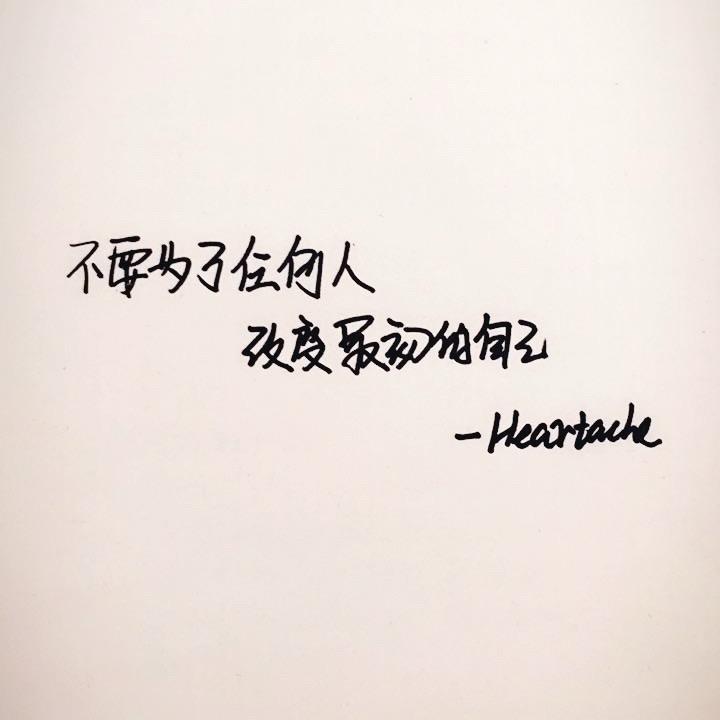 不要为了任何人
改变最初的自己
-Heartache